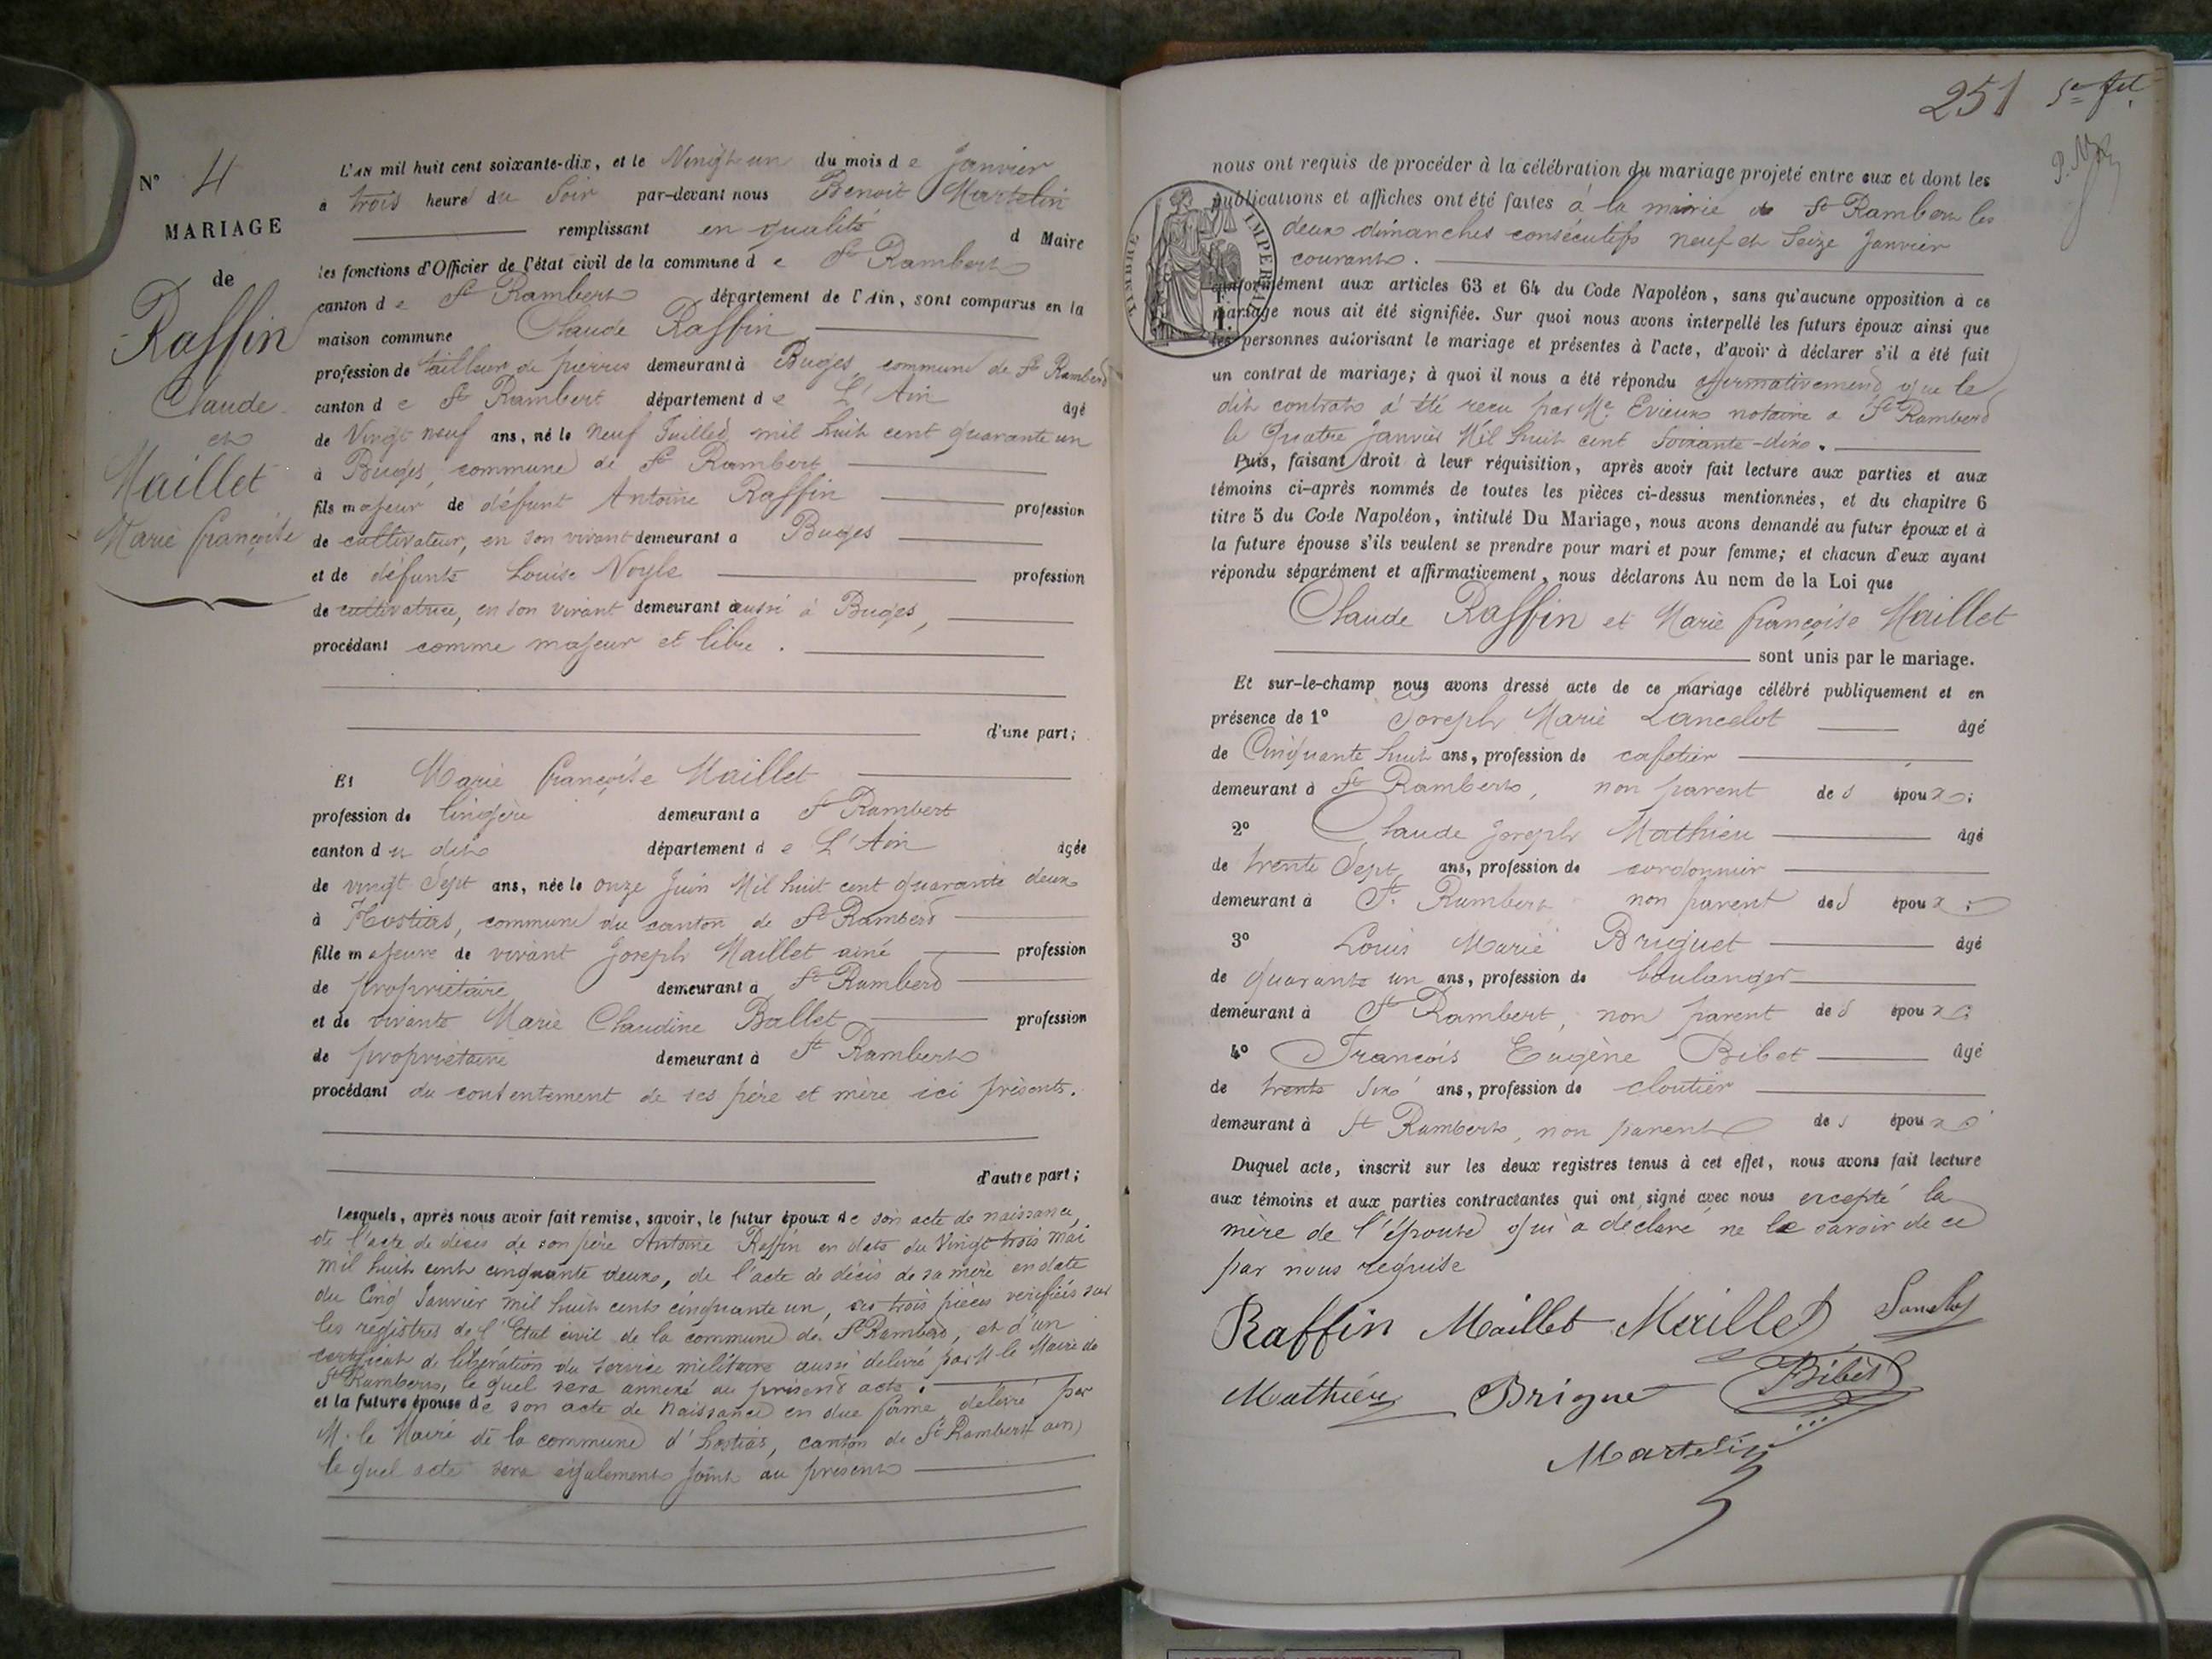 N° 4
MARIAGE
de
Raffin
Claude
et
Maillet
Marie françoise
L'AN mil huit cent soixante-dix, et le Vingt un du mois de Janvier
a trois heure du Soir par-devant nous Benoit Martelin
remplissant en qualité d Maire
les fonctions d'Officier de l'état civil de la commune de St Rambert
canton de St Rambert département de l'Ain, sont comparus en la
maison commune Claude Raffin
profession de tailleur de pierres demeurant à Buges, commune de St Rambert
canton de St Rambert département de L'Ain âgé
de Vingt neuf ans, né le neuf Juillet mil huit cent quarante un
à Buges, commune de St Rambert
fils majeur de défunt Antoine Raffin profession
de cultivateur, en son vivant demeurant a Buges
et de défunte Louise profession
de cultivatrice, en son vivant demeurant aussi à Buges,
procédant comme majeur et libre.
d'une part;
Et Marie françoise Maillet
profession de lingère demeurant a St Rambert
canton du dit département de L'Ain âgée
de vingt Sept ans, née le onze Juin Mil huit cent quarante deux
à Hostias, commune du canton de St Rambert
fille majeure de vivant Joseph Maillet ainé profession
de propriétaire demeurant à St Rambert
et de vivante Marie Claudine Ballet profession
de propriétaire demeurant à St Rambert
procédant du consentement de ses père et mère ici présents.
d'autre part;
Lesquels, après nous avoir fait remise, savoir, le futur époux de son acte de naissance,
de l'acte de décès de son père Antoine Raffin en date du Vingt trois mai
mil huit cent cinquante deux, de l'acte de décès de sa mère en date
du Cinq Janvier mil huit cent cinquante un, ses trois pièces verifiées sur
les registres de l'Etat civil de la commune de St Rambert, et d'un
certificat de libération du service militaire aussi delivré par M le Maire de
St Rambert, le quel sera annexé au présent acte.
et la future épouse de son acte de naissance en due forme délivré par
M. le Maire de la commune d'hostias, canton de St Rambert (ain)
le quel acte sera également joint au present
251 5e
nous ont requis de procéder à la célébration du mariage projeté entre eux et dont les
publications et affiches ont été faites à la mairie de St Rambert les
deux dimanches consécutifs neuf et Seize Janvier
courant.
TIMBRE IMPERIAL
conformément aux articles 63 et 64 du Code Napoléon, sans qu'aucune opposition à ce
mariage nous ait été signifiée. Sur quoi nous avons interpellé les futurs époux ainsi que
les personnes autorisant le mariage et présentes à l'acte, d'avoir à déclarer s'il a été fait
un contrat de mariage; à quoi il nous a été répondu affirmativement que le
dit contrat a été reçu par Me Evieux notaire a St Rambert
le Quatre Janvier Mil huit cent Soixante-dix.
Puis, faisant droit à leur réquisition, après avoir fait lecture aux parties et aux
témoins ci-après nommés de toutes les pièces ci-dessus mentionnées, et du chapitre 6
titre 5 du Code Napoléon, intitulé Du Mariage, nous avons demandé au futur époux et à
la future épouse s'ils veulent se prendre pour mari et pour femme; et chacun d'eux ayant
répondu séparément et affirmativement, nous déclarons Au nom de la Loi que
Claude Raffin et Marie françoise Maillet
sont unis par le mariage.
Et sur-le-champ nous avons dressé acte de ce mariage célébré publiquement et en
présence de 1° Joseph Marie Lancelot âgé
de Cinquante huit ans, profession de cafetier
demeurant à St Rambert, non parent des époux;
2° Claude Joseph Mathieu âgé
de trente Sept ans, profession de cordonnier
demeurant à St Rambert non parent des époux;
3° Louis Marie Briguet âgé
de quarante un ans, profession de boulanger
demeurant à St Rambert, non parent des époux;
4° François Eugène Bibet âgé
de trente Six ans, profession de cloutier
demeurant à St Rambert, non parent des époux
Duquel acte, inscrit sur les deux registres tenus à cet effet, nous avons fait lecture
aux témoins et aux parties contractantes qui ont signé avec nous excepté la
mère de l'épouse qui a déclaré ne le savoir de ce
par nous requise
Raffin Maillet Maillet Lancelot
Mathieu Briguet Bibet
Martelin